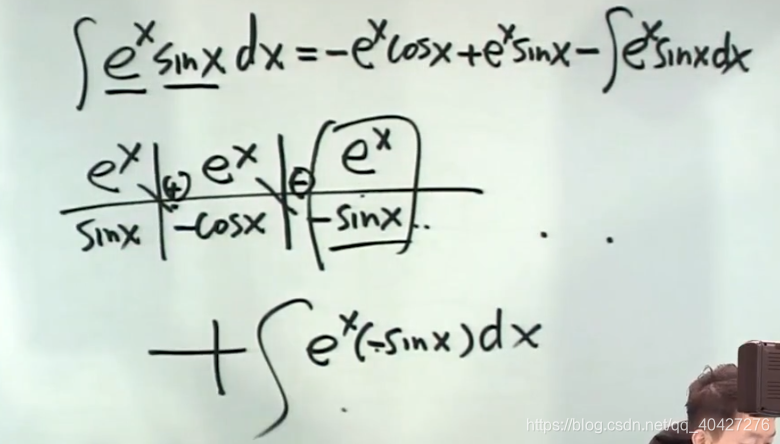 ∫ e^x sinx dx = -e^x cosx + e^x sinx - ∫ e^x sinx dx
e^x | ⊕ e^x | ⊖ e^x
sinx | -cosx | -sinx ..
+ ∫ e^x (-sinx) dx
https://blog.csdn.net/qq_40427276